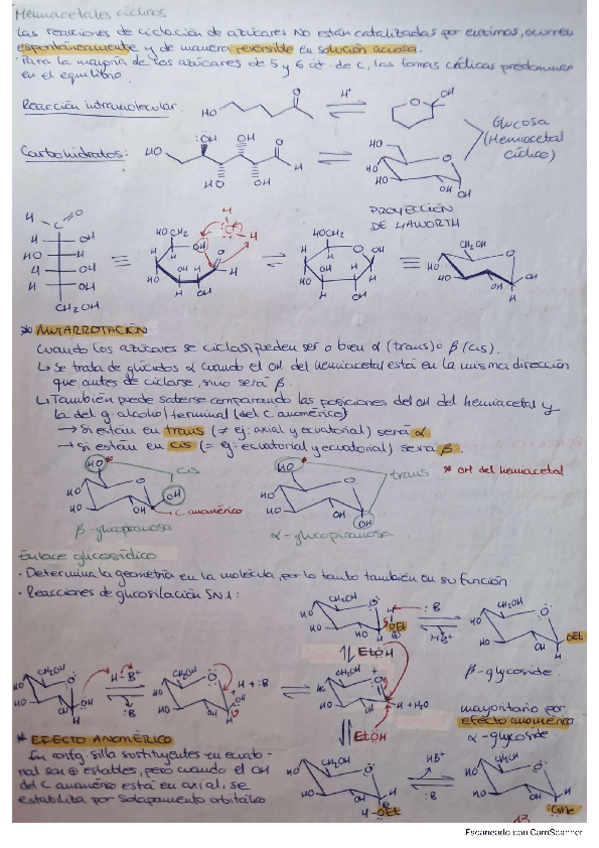 Hemiacetales cíclicos
Las reacciones de ciclación de azúcares NO están catalizadas por enzimas, ocurren
espontáneamente y de manera reversible en solución acuosa.
· Para la mayoría de los azúcares de 5 y 6 át. de C, las formas cíclicas predominan
en el equilibrio.
Reacción intramolecular:
HO
O
H⁺
O
OH
Glucosa
(Hemiacetal
cíclico)
Carbohidratos:
HO
OH
OH
O
H
HO
OH
HO
HO
HO
O
OH
OH
PROYECCIÓN
DE HAWORTH
H
C
O
H
OH
HO
H
H
OH
H
OH
CH₂OH
HOCH₂
OH
H
O
H
HOCH₂
O
OH
H
CH₂OH
HO
HO
O
OH
H
* MUTARROTACIÓN
Cuando los azúcares se ciclas pueden ser o bien α (trans) o β (cis).
↳ Se trata de glúcidos α cuando el OH del hemiacetal está en la misma dirección
que antes de ciclarse, sino será β.
↳ También puede saberse comparando las posiciones del OH del hemiacetal y
la del g. alcohol terminal (del C anomérico)
→ Si están en trans (≠ ej: axial y ecuatorial) será α
→ Si están en cis (= ej: ecuatorial y ecuatorial) será β.
HO
cis
HO
trans
* OH del hemiacetal
HO
HO
O
OH
C anomérico
HO
HO
O
OH
β-glucopiranosa
α-glucopiranosa
Enlace glicosídico
· Determina la geometría en la molécula, por lo tanto también en su función
· Reacciones de glicosilación SN1:
CH₂OH
HO
HO
O
H
:B
OEt
HB⁺
CH₂OH
HO
HO
O
OEt
H
EtOH
β-glycoside
CH₂OH
HO
HO
O
OH
H
H-B⁺
:B
CH₂OH
HO
HO
O
H + :B
CH₂OH
HO
O
H + H₂O
EtOH
mayoritario por
efecto anomérico
α-glycoside
* EFECTO ANOMÉRICO
En config. silla sustituyentes en ecuato-
rial son ⊕ estables, pero cuando el OH
del C anomérico está en axial, se
estabiliza por solapamiento orbitales
CH₂OH
HO
HO
O
H
H-OEt
HB⁺
:B
CH₂OH
HO
HO
O
H
13
Escaneado con CamScanner